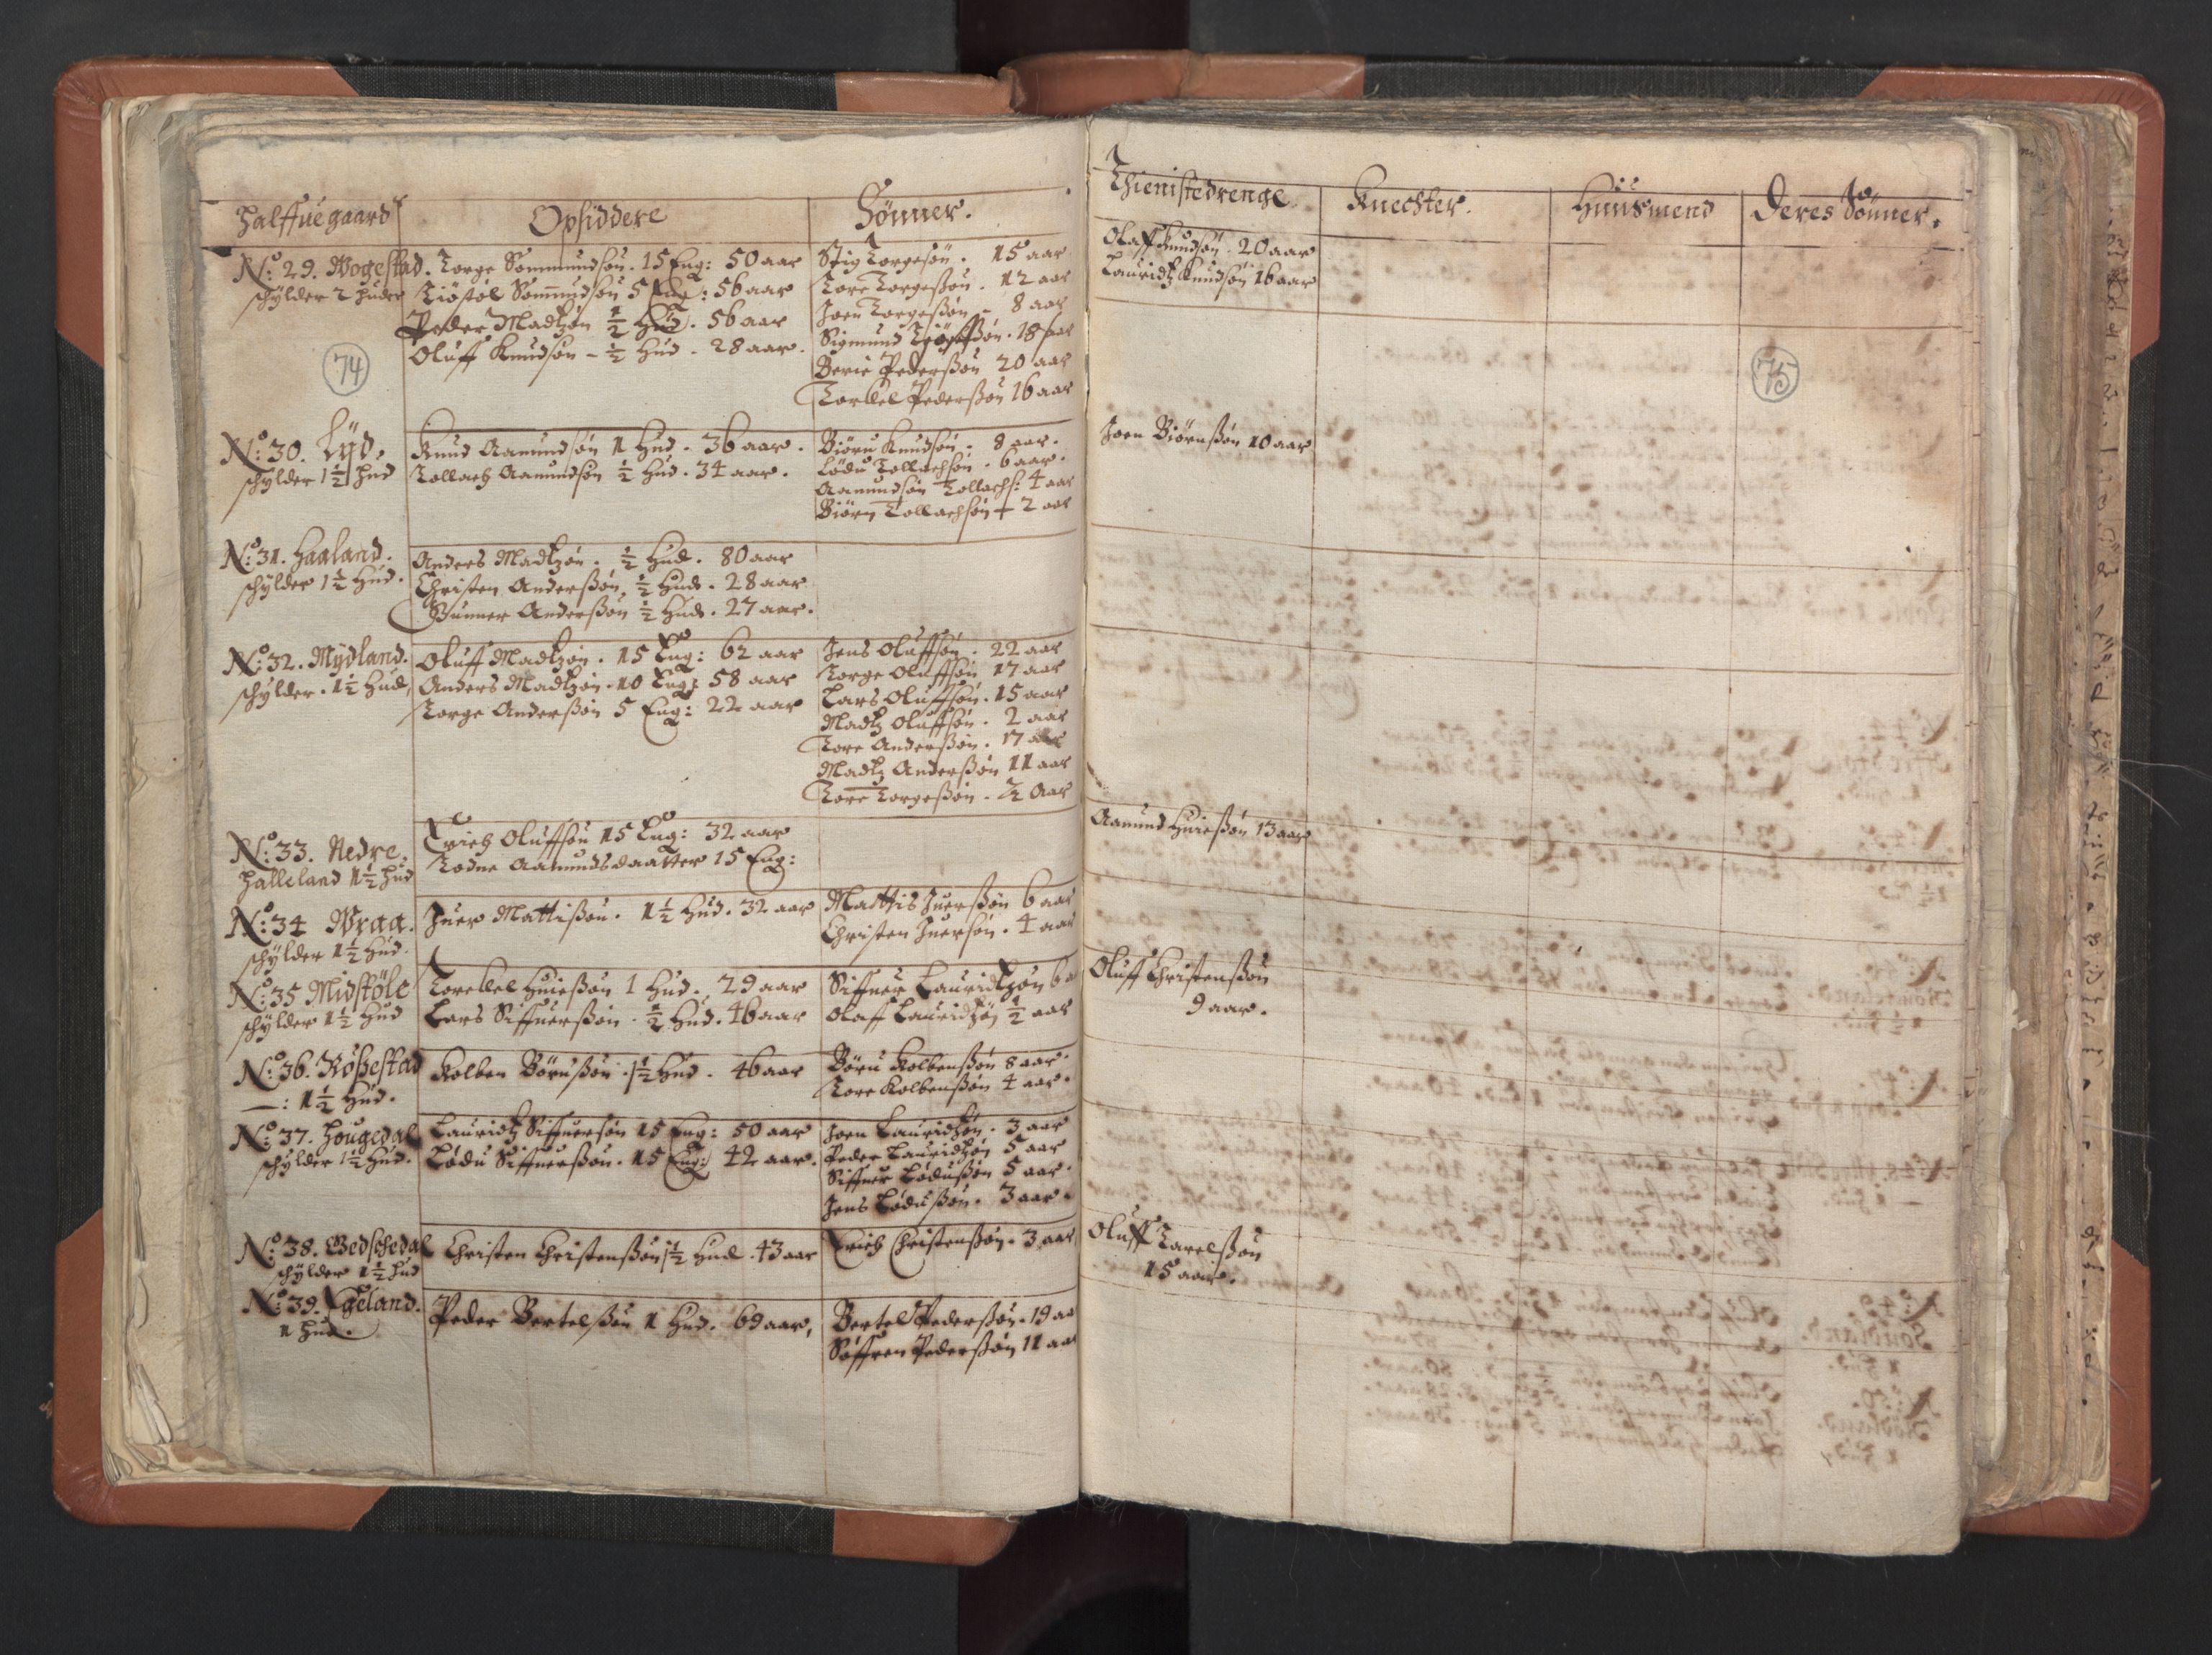 Halffue gaard
Opsiddere
Sønner.
No: 29. Wogestad.
schylder 2 huder
Torge Sommundsøn. 15 Eng: 50 aar
Tiøstøl Sommundsøn 5 Eng: 56 aar
Peder Madtzøn ½ Hud. 56 aar
Oluff Knudsøn - ½ Hud - 28 aar.
Stig Torgesøn. 15 aar
Tore Torgeßøn. 12 aar
Joen Torgeßøn - 8 aar
Sigmund 18 aar
Berie Pederßøn 20 aar
Torkel Pederßøn 16 aar
74
No: 30. Lyd.
schylder 1½ hud
Knud Aamundsøn 1 Hud. 36 aar.
Tollach Aamundsøn ½ Hud. 34 aar.
Biørn Knudsøn - 8 aar.
Lødu Tollachsøn - 6 aar.
Aamundsøn Tollachs: 4 aar
Biørn Tollachsøn 2 aar
No: 31. Haaland.
schylder 1½ Hud.
Anders Madtzøn. ½ Hud. 80 aar
Christen Anderßøn, ½ Hud. 28 aar
Gunner Anderßøn ½ Hud. 27 aar.
No: 32. Mydland.
schylder. 1½ Hud,
Oluff Madtzøn. 15 Eng: 62 aar
Anders Madtzøn. 10 Eng: 58 aar
Torge Anderßøn 5 Eng: 22 aar
Jens Oluffsøn. 22 aar
Torge Oluffsøn 17 aar
Lars Oluffsøn. 15 aar
Madtz Oluffsøn. 2 aar
Tore Anderßøn. 17 aar
Madtz Anderßøn 11 aar
Tore Torgeßøn - ½ Aar
No: 33. Nedre
Halleland 1½ hud
Erich Oluffsøn 15 Eng: 32 aar
Todne Aamundsdaatter 15 Eng:
No: 34 Wraa.
schylder 1½ Hud.
Juer Mattißøn. 1½ Hud. 32 aar
Mattis Juerßøn 6 aar
Christen Juersøn. 4 aar
No: 35 Midstøle
schylder 1½ Hud
Torckel Huießøn 1 Hud. 29 aar
Lars Siffuerßøn. ½ Hud. 46 aar
Siffuer Lauridtzøn 6 a
Olaff Lauridtzøn ½ aar
No: 36. Røßestad
—: 1½ Hud.
Kolben Børnßøn. 1½ Hud. 46 aar
Børn Kolbenßøn 8 aar.
Tore Kolbenßøn 4 aar.
No: 37. Hougedal
schylder 1½ Hud.
Lauridtz Siffuersøn 15 Eng: 50 aar
Lødu Siffuerßøn. 15 Eng: 42 aar.
Joen Lauridtzøn. 3 aar
Peder Lauridtzøn 5 aar
Siffuer Lødußøn 5 aar.
Jens Lødußøn. 3 aar.
No: 38. Gedschedal
schylder 1½ hud
Christen Christenßøn 1½ Hud. 43 aar
Erich Christenßøn. 3 aar
No: 39. Egeland.
1 Hud.
Peder Bertelßøn 1 Hud. 69 aar,
Bertel Pederßøn. 19 aa
Søffren Pederßøn 11 aar
Thienistedrenge.
Knechter.
Huusmend
Deres Sønner.
Olaff Knudsøn. 20 aar
Lauridtz Knudsøn 16 aar
75
Joen Biørnßøn 10 aar
Aamund Huießøn 13 aar
Oluff Christenßøn
9 aar.
Oluff Tarelßøn
15 aar.